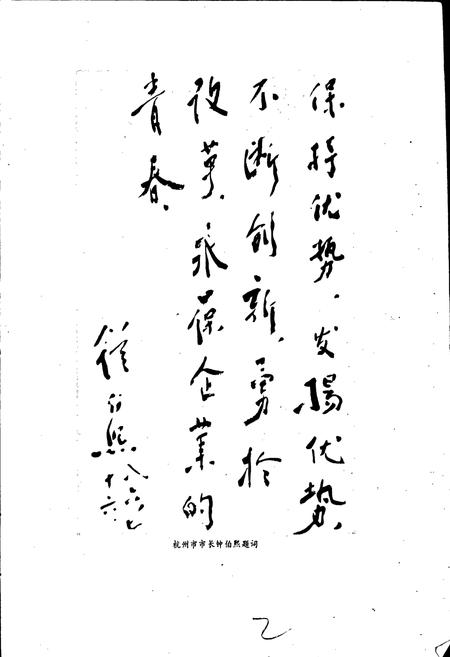 保持优势、发扬优势、
不断创新、勇于
改革、永保企业的
青春。
钟伯熙
杭州市市长钟伯熙题词
2